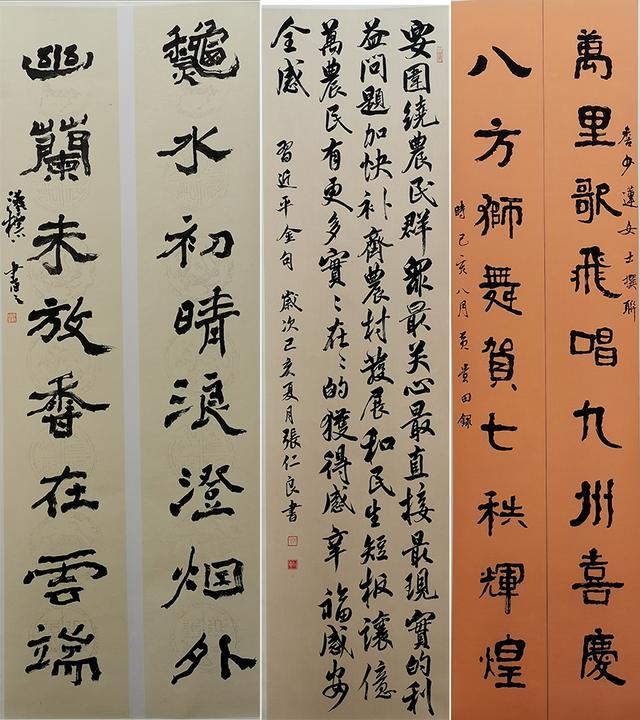 萬里歌飛唱九州喜慶
詹少蓮女士撰聯
八方獅舞賀七秩輝煌
時己亥八月黃貴田錄
要圍繞農民群眾最关心最直接最現實的利
益问題加快补齊農村發展和民生短板讓億
萬農民有更多實〻在〻的獲得感幸福感安
全感
習近平金句 歲次己亥夏月張仁良書
龝水初晴浪澄烟外
幽蘭未放香在雲端